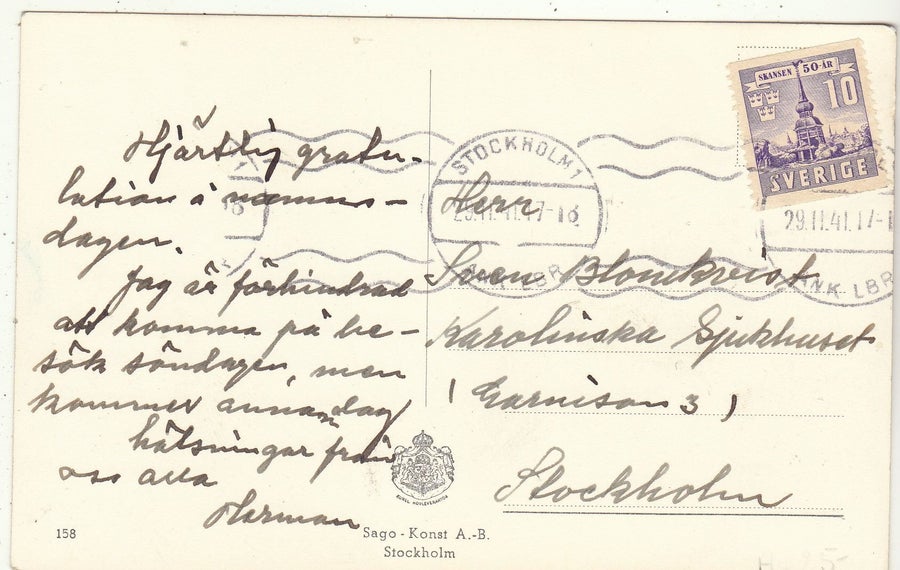 Hjärtlig gratu-
lation å namns-
dagen.
Jag är förhindrad
att komma på be-
sök söndagen, men
kommer annan dag
hälsningar från
oss alla
Herman
Herr
Sven Blomkvist
Karolinska Sjukhuset
(Garnison 3)
Stockholm
SKANSEN 50-ÅR
10
SVERIGE
STOCKHOLM 1
29.11.41.17-18
ANK LBR
29.11.41.17-1
ANK LBR
158
Sago-Konst A.-B.
Stockholm
KUNGL. HOVLEVERANTÖR